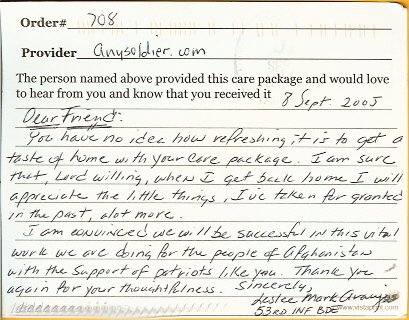 Order# 708
Provider anysoldier.com
The person named above provided this care package and would love
to hear from you and know that you received it 8 Sept. 2005
Dear Friend:
You have no idea how refreshing it is to get a
taste of home with your care package. I am sure
that, Lord willing, when I get back home I will
appreciate the little things, I've taken for granted
in the past, alot more.
I am convinced we will be successful in this vital
work we are doing for the people of Afghanistan
with the support of patriots like you. Thank you
again for your thoughtfulness. Sincerely,
Mark
53RD INF BDE